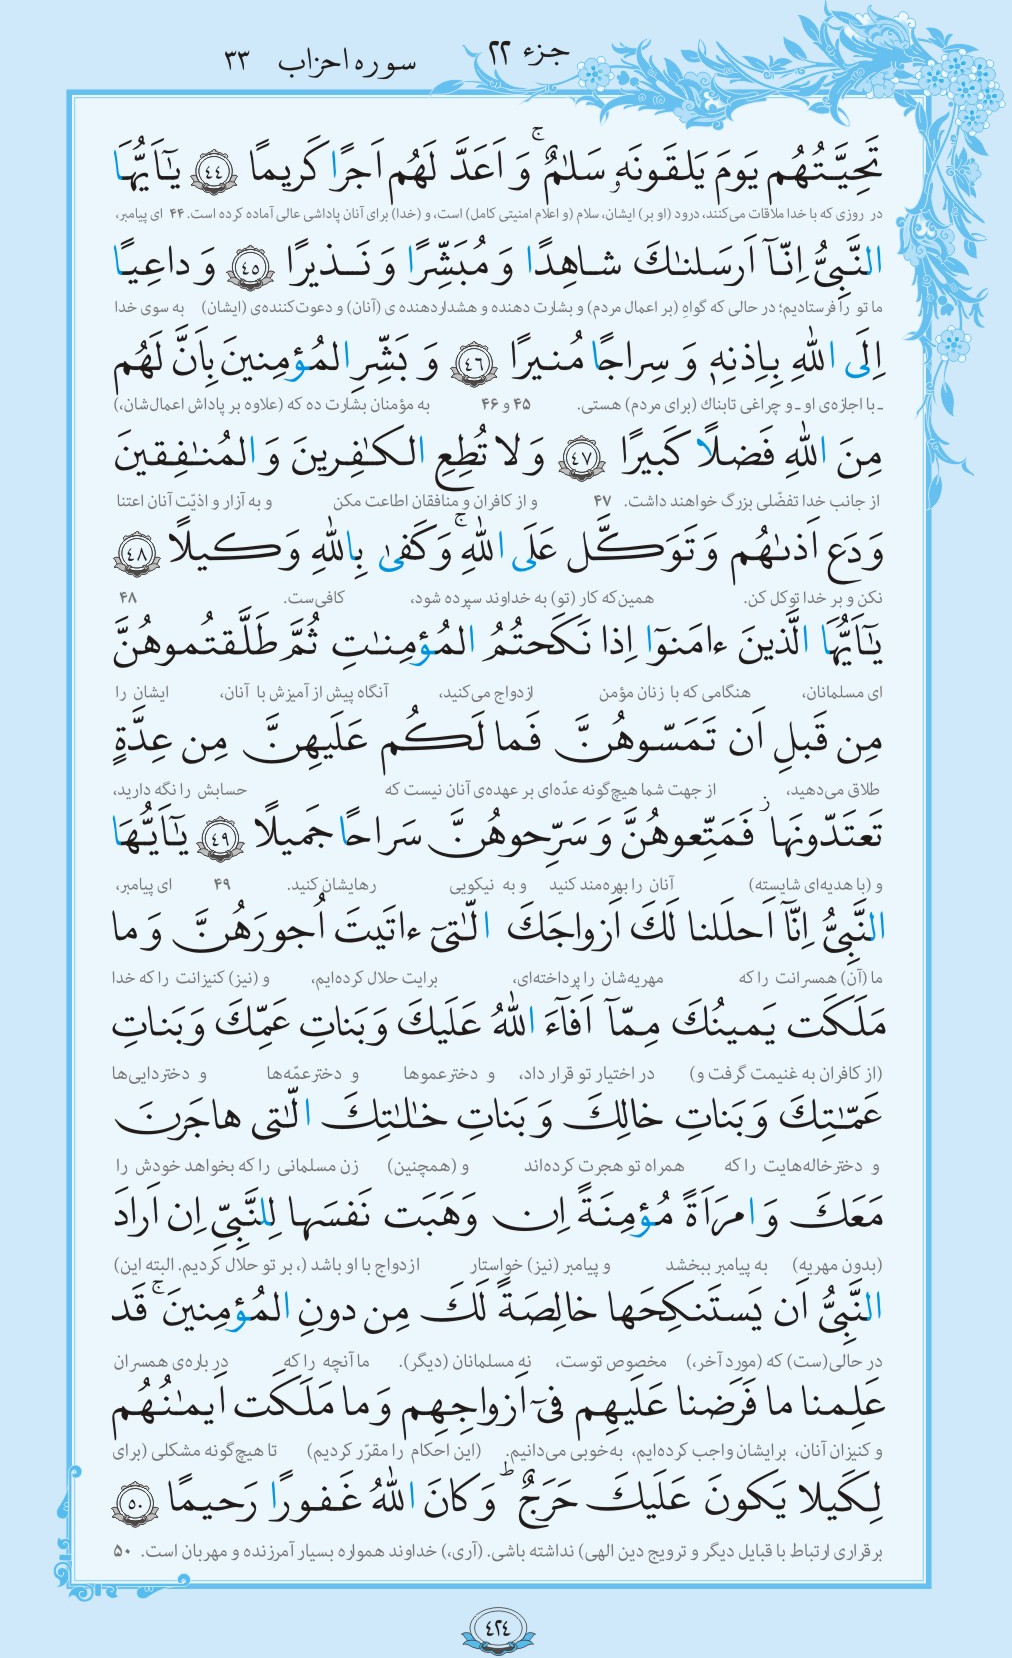 جزء ۲۲
سوره احزاب ۳۳
تَحِيَّـتُهُم يَومَ يَلقَونَهٗ سَلٰمٌ ۚ وَ اَعَدَّ لَهُم اَجرًا كَريمًا ﴿٤٤﴾ يٰٓاَيُّهَا
در روزی که با خدا ملاقات می‌کنند، درود (او بر) ایشان، سلام (و اعلام امنیتی کامل) است، و (خدا) برای آنان پاداشی عالی آماده کرده است. ۴۴ ای پیامبر،
النَّبِىُّ اِنّآ اَرسَلنٰكَ شاهِدًا وَ مُبَشِّرًا وَ نَذيرًا ﴿٤٥﴾ وَ داعِيًا
ما تو را فرستادیم؛ در حالی که گواهِ (بر اعمال مردم) و بشارت دهنده و هشداردهنده ی (آنان) و دعوت‌کننده‌ی (ایشان) به سوی خدا
اِلَى اللهِ بِاِذنِهٖ وَ سِراجًا مُنيرًا ﴿٤٦﴾ وَ بَشِّرِ المُؤمِنينَ بِاَنَّ لَهُم
ـ با اجازه‌ی او ـ و چراغی تابناك (برای مردم) هستی. ۴۵ و ۴۶ به مؤمنان بشارت ده که (علاوه بر پاداش اعمال‌شان،)
مِنَ اللهِ فَضلًا كَبيرًا ﴿٤٧﴾ وَ لا تُطِعِ الكٰفِرينَ وَ المُنٰفِقينَ
از جانب خدا تفضّلی بزرگ خواهند داشت. ۴۷ و از کافران و منافقان اطاعت مکن و به آزار و اذیّت آنان اعتنا
وَ دَع اَذىٰهُم وَ تَوَكَّل عَلَى اللهِ ۚ وَ كَفىٰ بِاللهِ وَكيلًا ﴿٤٨﴾
نکن و بر خدا توکل کن. همین‌که کار (تو) به خداوند سپرده شود، کافی‌ست. ۴۸
يٰٓاَيُّهَا الَّذينَ ءامَنوٓا اِذا نَكَحتُمُ المُؤمِنٰتِ ثُمَّ طَلَّقتُموهُنَّ
ای مسلمانان، هنگامی که با زنان مؤمن ازدواج می‌کنید، آنگاه پیش از آمیزش با آنان، ایشان را
مِن قَبلِ اَن تَمَسّوهُنَّ فَما لَكُم عَلَيهِنَّ مِن عِدَّةٍ
طلاق می‌دهید، از جهت شما هیچ‌گونه عدّه‌ای بر عهده‌ی آنان نیست که حسابش را نگه دارید،
تَعتَدّونَها ۖ فَمَتِّعوهُنَّ وَ سَرِّحوهُنَّ سَراحًا جَميلًا ﴿٤٩﴾ يٰٓاَيُّهَا
و (با هدیه‌ای شایسته) آنان را بهره‌مند کنید و به نیکویی رهایشان کنید. ۴۹ ای پیامبر،
النَّبِىُّ اِنّآ اَحلَلنا لَكَ اَزواجَكَ الّٰتىٓ ءاتَيتَ اُجورَهُنَّ وَ ما
ما (آن) همسرانت را که مهریه‌شان را پرداخته‌ای، برایت حلال کرده‌ایم، و (نیز) کنیزانت را که خدا
مَلَكَت يَمينُكَ مِمّآ اَفآءَ اللهُ عَلَيكَ وَ بَناتِ عَمِّكَ وَ بَناتِ
(از کافران به غنیمت گرفت و) در اختیار تو قرار داد، و دختر عموها و دختر عمّه‌ها و دختر دایی‌ها
عَمّٰتِكَ وَ بَناتِ خالِكَ وَ بَناتِ خٰلٰتِكَ الّٰتى هاجَرنَ
و دختر خاله‌هایت را که همراه تو هجرت کرده‌اند و (همچنین) زن مسلمانی را که بخواهد خودش را
مَعَكَ وَ امرَاَةً مُؤمِنَةً اِن وَهَبَت نَفسَها لِلنَّبِىِّ اِن اَرادَ
(بدون مهریه) به پیامبر ببخشد و پیامبر (نیز) خواستار ازدواج با او باشد (، بر تو حلال کردیم. البته این)
النَّبِىُّ اَن يَستَنكِحَها خالِصَةً لَكَ مِن دونِ المُؤمِنينَ ۚ قَد
در حالی(ست) که (مورد آخر،) مخصوص توست، نه مسلمانان (دیگر). ما آنچه را که در باره‌ی همسران
عَلِمنا ما فَرَضنا عَلَيهِم فىٓ اَزواجِهِم وَ ما مَلَكَت اَيمٰنُهُم
و کنیزان آنان، بر ایشان واجب کرده‌ایم، به‌خوبی می‌دانیم. (این احکام را مقرّر کردیم) تا هیچ‌گونه مشکلی (برای
لِكَيلا يَكونَ عَلَيكَ حَرَجٌ ۗ وَ كانَ اللهُ غَفورًا رَحيمًا ﴿٥٠﴾
برقراری ارتباط با قبایل دیگر و ترویج دین الهی) نداشته باشی. (آری،) خداوند همواره بسیار آمرزنده و مهربان است. ۵۰
٤٢٤